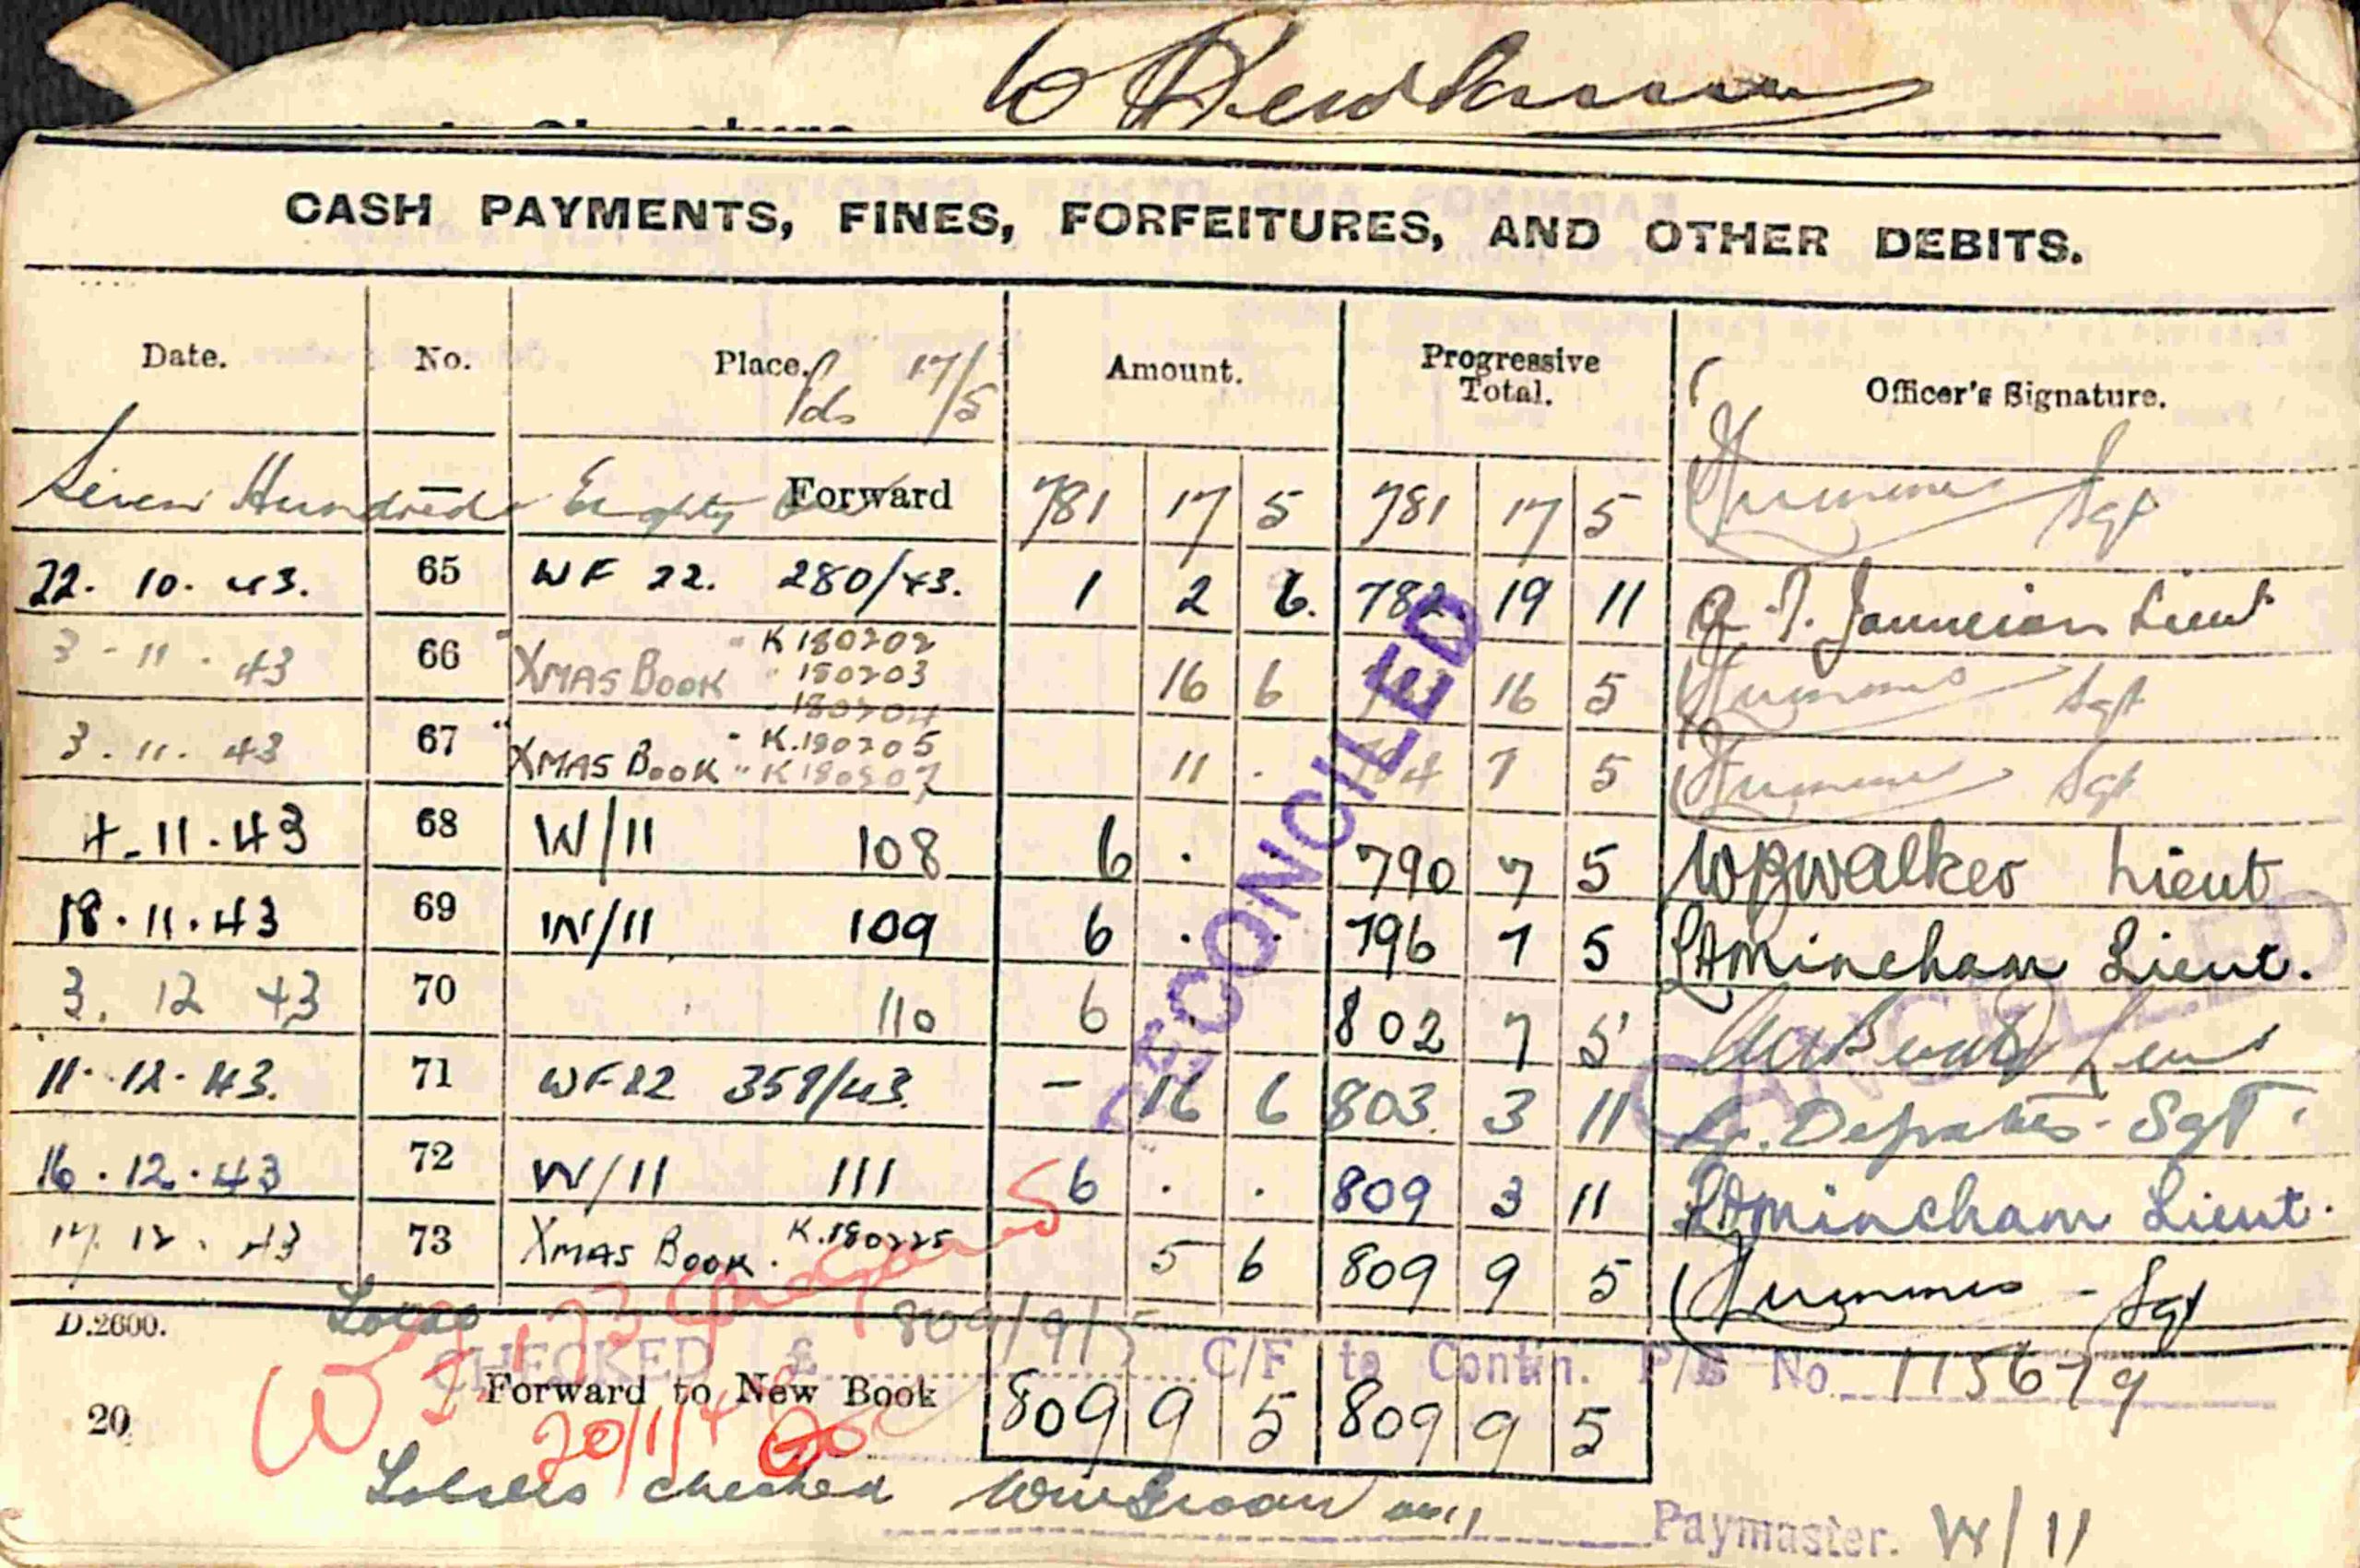 CASH PAYMENTS, FINES, FORFEITURES, AND OTHER DEBITS.
Date. No. Place. Amount. Progressive Total. Officer's Signature.
17/5
Seven Hundred Eighty Forward 781 17 5 781 17 5 Sgt
22. 10. 43. 65 WF 22. 280/43. 1 2 6. 782 19 11 Lieut
3 - 11 - 43 66 XMAS BOOK K 180202 180203 180204 16 6 16 5 Sgt
3. 11. 43 67 XMAS BOOK K.180205 K180207 11 . 7 5 Sgt
4-11-43 68 W/11 108 6 . . 790 7 5 WBWalker Lieut
18.11.43 69 W/11 109 6 . . 796 7 5 LAMincham Lieut.
3. 12 43 70 110 6 802 7 5
11. 12. 43. 71 WF22 359/43. - 16 6 803. 3 11 Sgt
16.12.43 72 W/11 111 6 . . 809 3 11 LAMincham Lieut.
17. 12. 43 73 XMAS BOOK. K.180225 5 6 809 9 5 Sgt
RECONCILED
CANCELLED
D.2600.
809/9/5
CHECKED £ C/F to Contin. P/B No. 115679
Forward to New Book 809 9 5 809 9 5
20
checked
Paymaster. W/11